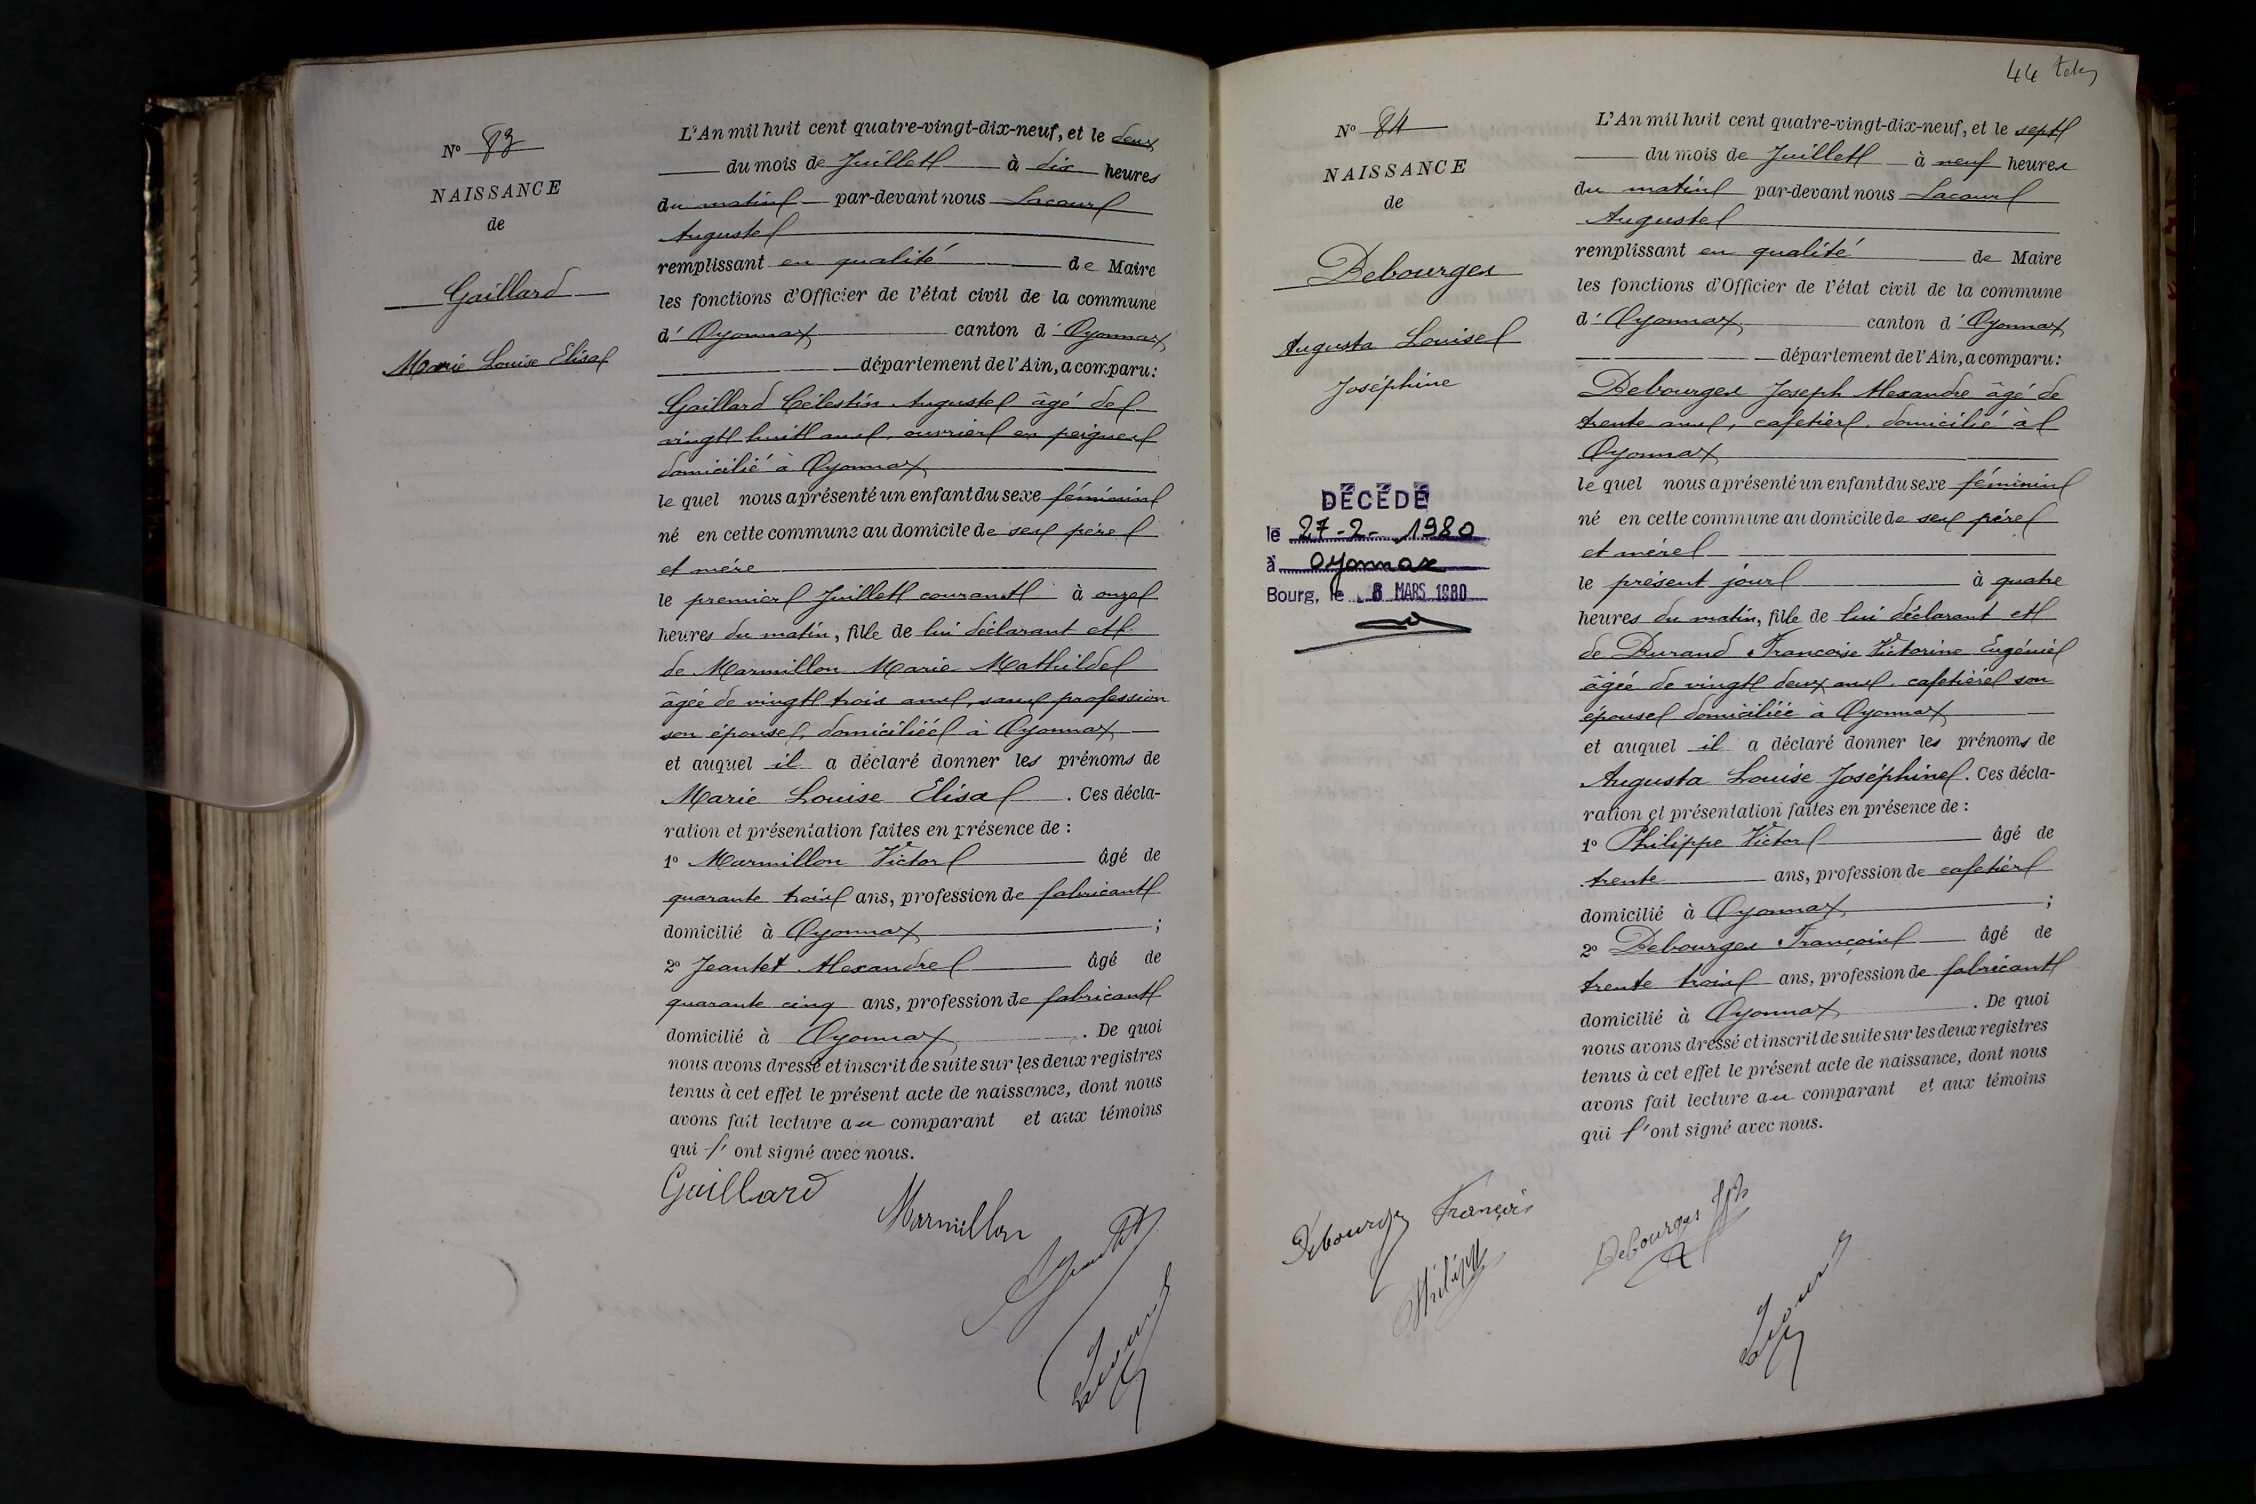 N° 83
NAISSANCE
de
Gaillard
Marie Louise Elisa
L'An mil huit cent quatre-vingt-dix-neuf, et le deux
du mois de Juillet à dix heures
du matin par-devant nous Lacour
Auguste
remplissant en qualité de Maire
les fonctions d'Officier de l'état civil de la commune
d'Oyonnax canton d'Oyonnax
département de l'Ain, a comparu:
Gaillard Célestin Auguste âgé de
vingt huit ans, ouvrier en peignes
domicilié à Oyonnax
le quel nous a présenté un enfant du sexe féminin
né en cette commune au domicile de ses père
et mère
le premier Juillet courant à onze
heures du matin, fille de lui déclarant et
de Marmillon Marie Mathilde
âgée de vingt trois ans, sans profession
son épouse, domiciliée à Oyonnax
et auquel il a déclaré donner les prénoms de
Marie Louise Elisa. Ces décla-
ration et présentation faites en présence de :
1° Marmillon Victor âgé de
quarante trois ans, profession de fabricant
domicilié à Oyonnax ;
2° Jeantet Alexandre âgé de
quarante cinq ans, profession de fabricant
domicilié à Oyonnax. De quoi
nous avons dressé et inscrit de suite sur les deux registres
tenus à cet effet le présent acte de naissance, dont nous
avons fait lecture au comparant et aux témoins
qui l'ont signé avec nous.
Gaillard
Marmillon
44
N° 84
NAISSANCE
de
Debourges
Augusta Louise
Joséphine
DÉCÉDÉ
le 27-2-1980
à Oyonnax
Bourg, le 6 MARS 1980
L'An mil huit cent quatre-vingt-dix-neuf, et le sept
du mois de Juillet à neuf heures
du matin par-devant nous Lacour
Auguste
remplissant en qualité de Maire
les fonctions d'Officier de l'état civil de la commune
d'Oyonnax canton d'Oyonnax
département de l'Ain, a comparu:
Debourges Joseph Alexandre âgé de
trente ans, cafetier domicilié à
Oyonnax
le quel nous a présenté un enfant du sexe féminin
né en cette commune au domicile de ses père
et mère
le présent jour à quatre
heures du matin, fille de lui déclarant et
de Durand Francoise Victorine Eugénie
âgée de vingt deux ans, cafetière son
épouse domiciliée à Oyonnax
et auquel il a déclaré donner les prénoms de
Augusta Louise Joséphine. Ces décla-
ration et présentation faites en présence de :
1° Philippe Victor âgé de
trente ans, profession de cafetier
domicilié à Oyonnax ;
2° Debourges François âgé de
trente trois ans, profession de fabricant
domicilié à Oyonnax. De quoi
nous avons dressé et inscrit de suite sur les deux registres
tenus à cet effet le présent acte de naissance, dont nous
avons fait lecture au comparant et aux témoins
qui l'ont signé avec nous.
Debourges François
Debourges
Philippe